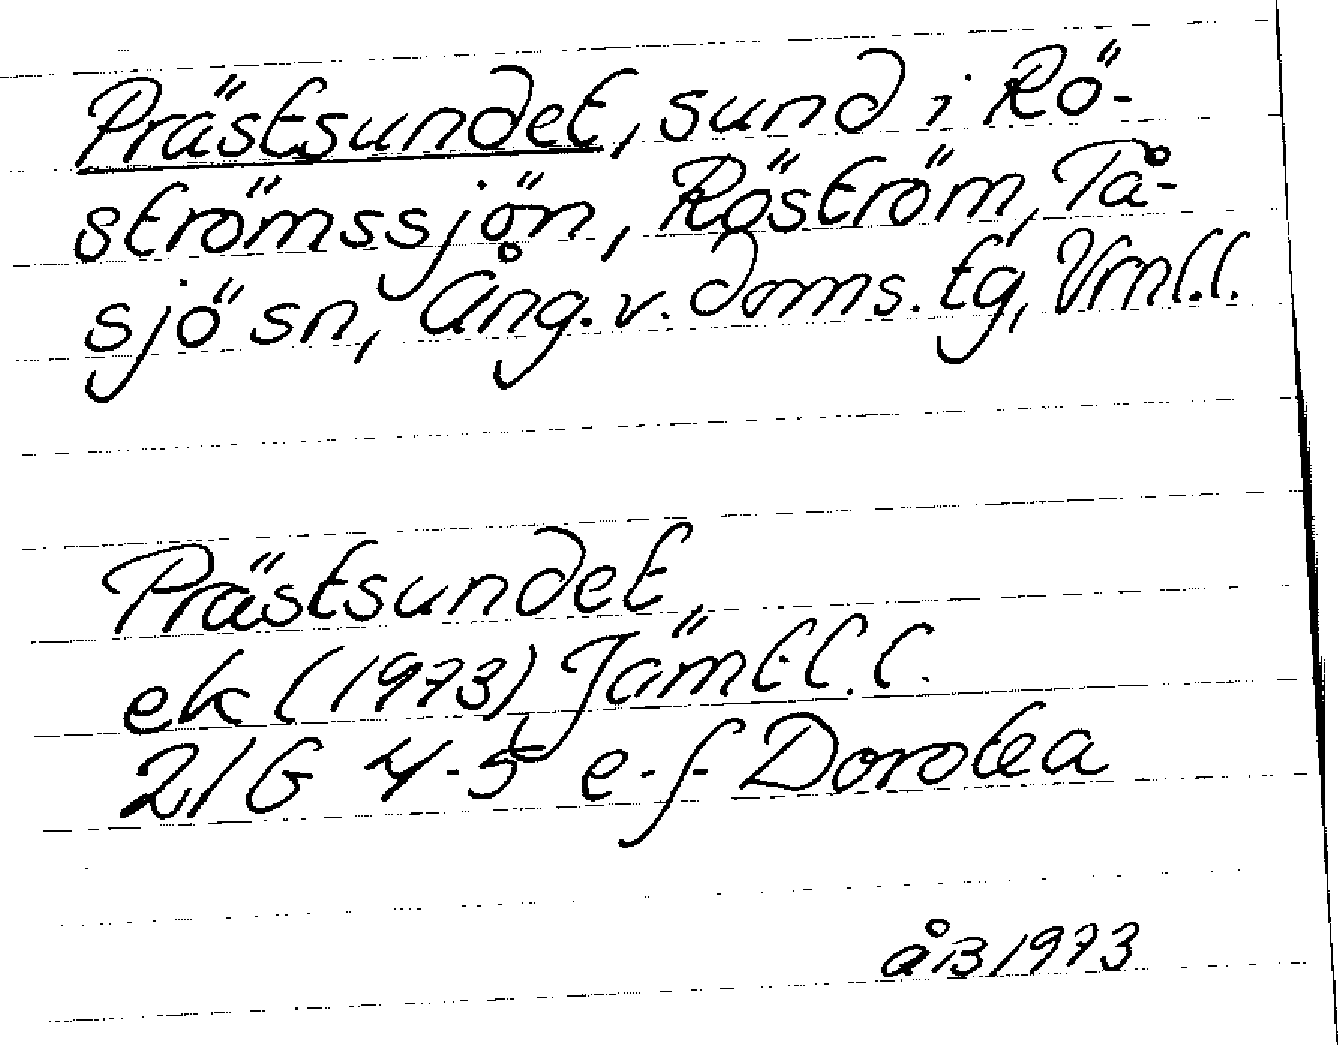 Prästsundet, sund i Rö-
strömssjön, Röström, Tå-
sjö sn, Ång. v. doms. tg, Vrnl.l.
Prästsundet,
ek (1973), Jämtl.l.
21G 4-5 e-f Dorotea
åB 1973